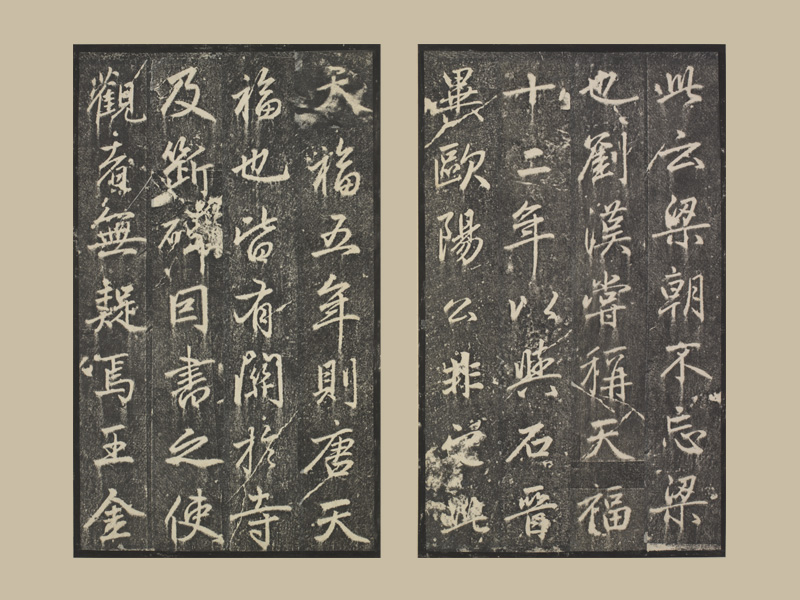 此云梁朝不忘梁
也劉漢嘗稱天福
十二年以與石晉
歐陽公非此
天福五年則唐天
福也皆有關於寺
及斷碑回書之使
觀者無疑焉王金